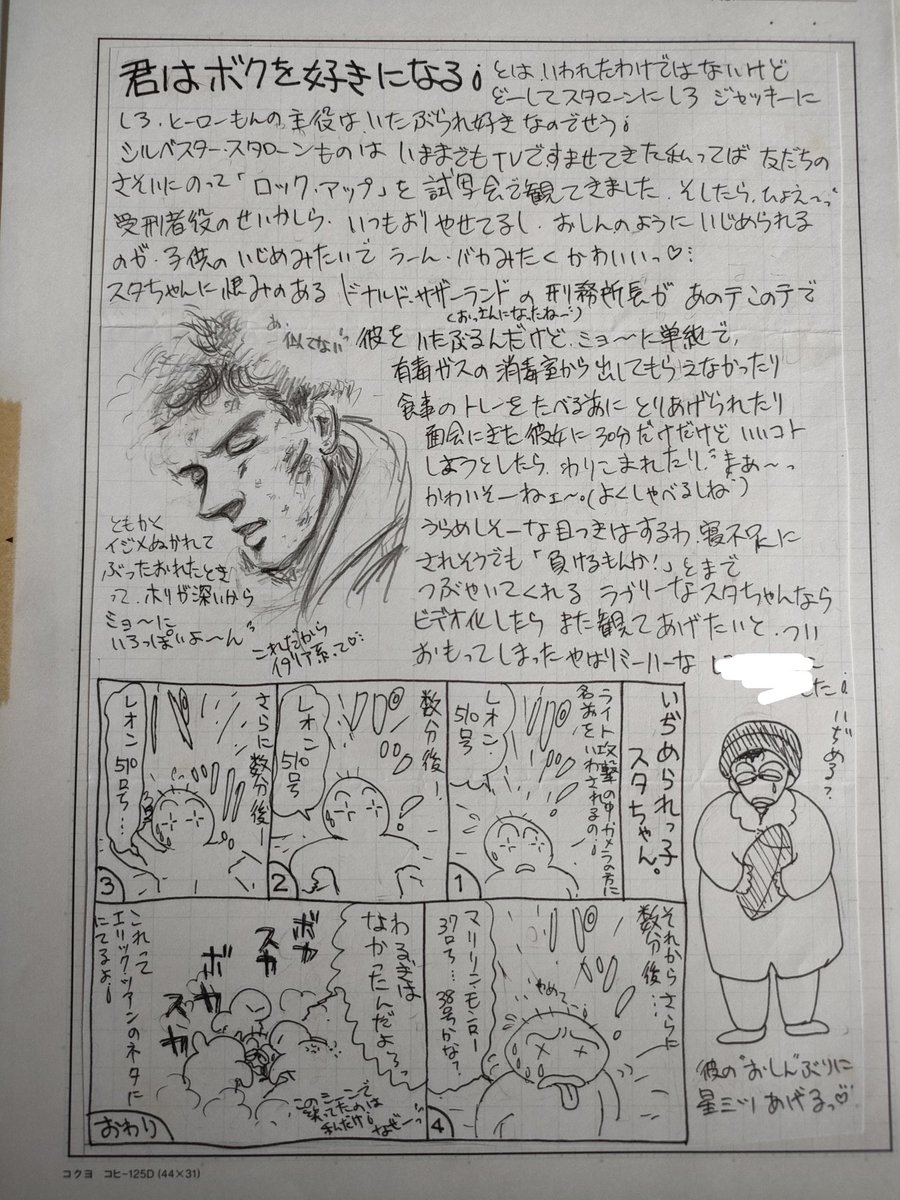 君はボクを好きになる。とは いわれたわけではないけど
どーしてスタローンにしろ ジャッキーに
しろ、ヒーローもんの主役は、いたぶられ好きなのでせう。
シルベスター・スタローンものは いままでもTVですませてきた私ってば 友だちの
さそいにのって「ロック・アップ」を 試写会で観てきました。そしたら、ひょえーっ
受刑者役のせいかしら、いつもよりやせてるし、おしんのように いじめられる
のが、子供の いじめみたいで うーん、バカみたく かわいいっ♡
スタちゃんに恨みのある ドナルド・サザーランドの 刑務所長が あのテこのテで
(おっさんになったねー)
あ、似てない
彼を いたぶるんだけど、ミョーに単純で、
有毒ガスの 消毒室から 出してもらえなかったり
食事のトレーを たべるまえに とりあげられたり
面会にきた彼女に 30分だけだけど いいコト
しようとしたら、わりこまれたり、まぁ〜っ
かわいそーねェ〜。(よくしゃべるしね)
うらめしそーな目つきはするわ、寝不足に
されそうでも「負けるもんか!」とまで
つぶやいてくれる ラヴリーなスタちゃんなら
ビデオ化したら また観てあげたいと、つい
おもってしまった やはりミーハーな
した。
ともかく
イジメぬかれて
ぶったおれたとき
って、ホリが深いから
ミョーに
いろっぽいよ〜ん
これだから
イタリア系って♡
いぢめられっ子
スタちゃん。
ライト攻撃の中カメラの方に
名前をいわされるの。
レオン
510号
1
数分後!
レオン
510号
2
さらに数分後ー
レオン
510号ち…
3
それからさらに
数分後…
やめて
マリリン・モンロー
37号…38号かな?
4
わるぎは
なかったんだよっ
ボカ
スカ
ボカ
スカ
このシーンで
笑ってたのは
私だけ。なぜーっ
これって
エリック・ツァンのネタに
にてるよ。
おわり
いぢめる?
彼の"おしん"ぶりに
星三ツ あげるっ♡
コクヨ コヒ-125D (44×31)